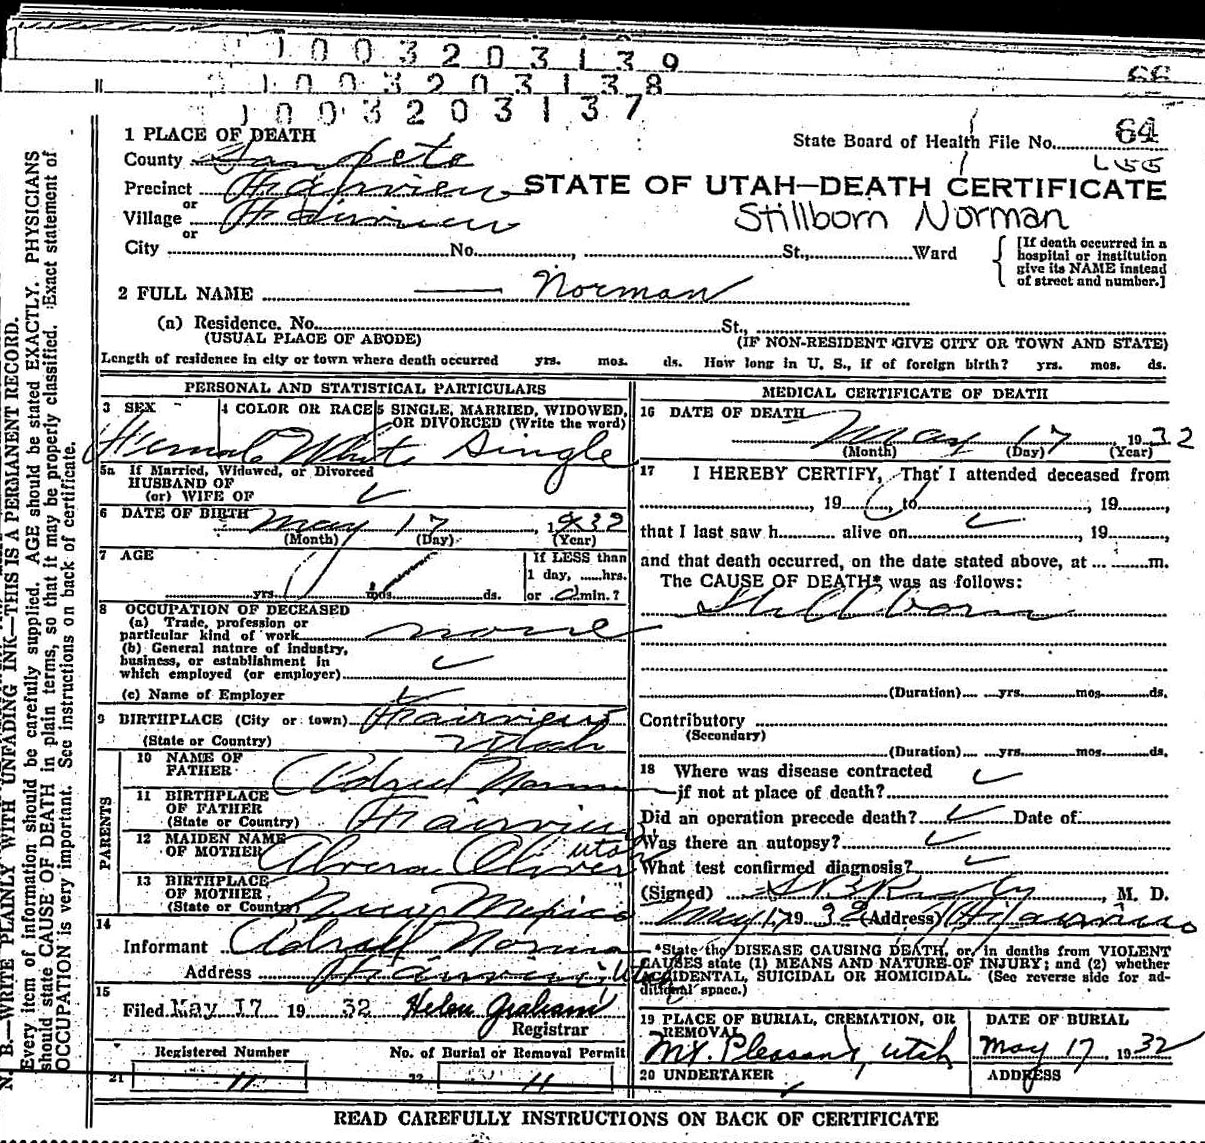 1003203139
1003203138
66
1003203137
1 PLACE OF DEATH
State Board of Health File No. 64
County Sanpete
L55
Precinct Fairview
STATE OF UTAH—DEATH CERTIFICATE
or
Village Fairview
Stillborn Norman
or
City No. , St., Ward
[If death occurred in a
hospital or institution
give its NAME instead
of street and number.]
2 FULL NAME Norman
(a) Residence. No. St.,
(USUAL PLACE OF ABODE) (IF NON-RESIDENT GIVE CITY OR TOWN AND STATE)
Length of residence in city or town where death occurred yrs. mos. ds. How long in U. S., if of foreign birth? yrs. mos. ds.
PERSONAL AND STATISTICAL PARTICULARS
3 SEX 4 COLOR OR RACE 5 SINGLE, MARRIED, WIDOWED,
OR DIVORCED (Write the word)
Female White Single
5a If Married, Widowed, or Divorced
HUSBAND OF
(or) WIFE OF
6 DATE OF BIRTH May 17, 1932
(Month) (Day) (Year)
7 AGE If LESS than
1 day, hrs.
yrs. mos. ds. or 0 min.?
8 OCCUPATION OF DECEASED
(a) Trade, profession or
particular kind of work none
(b) General nature of industry,
business, or establishment in
which employed (or employer)
(c) Name of Employer
9 BIRTHPLACE (City or town) Fairview
(State or Country) Utah
PARENTS
10 NAME OF
FATHER Norman
11 BIRTHPLACE
OF FATHER
(State or Country) Fairview
Utah
12 MAIDEN NAME
OF MOTHER Alvera Oliver
13 BIRTHPLACE
OF MOTHER
(State or Country) New Mexico
14
Informant Norman
Address Fairview, Utah
15
Filed May 17 1932 Helen Graham
Registrar
Registered Number No. of Burial or Removal Permit
21 11 22 11
MEDICAL CERTIFICATE OF DEATH
16 DATE OF DEATH
May 17, 1932
(Month) (Day) (Year)
17 I HEREBY CERTIFY, That I attended deceased from
, 19 to , 19
that I last saw h alive on , 19
and that death occurred, on the date stated above, at m.
The CAUSE OF DEATH* was as follows:
Stillborn
(Duration) yrs. mos. ds.
Contributory
(Secondary)
(Duration) yrs. mos. ds.
18 Where was disease contracted
if not at place of death?
Did an operation precede death? Date of
Was there an autopsy?
What test confirmed diagnosis?
(Signed) , M. D.
May 17 1932 (Address) Fairview
*State the DISEASE CAUSING DEATH, or in deaths from VIOLENT
CAUSES state (1) MEANS AND NATURE OF INJURY; and (2) whether
ACCIDENTAL, SUICIDAL OR HOMICIDAL. (See reverse side for ad-
ditional space.)
19 PLACE OF BURIAL, CREMATION, OR
REMOVAL
Mt. Pleasant, Utah
DATE OF BURIAL
May 17, 1932
20 UNDERTAKER ADDRESS
READ CAREFULLY INSTRUCTIONS ON BACK OF CERTIFICATE
N. B.—WRITE PLAINLY WITH UNFADING INK—THIS IS A PERMANENT RECORD.
Every item of information should be carefully supplied. AGE should be stated EXACTLY. PHYSICIANS
should state CAUSE OF DEATH in plain terms, so that it may be properly classified. Exact statement of
OCCUPATION is very important. See instructions on back of certificate.